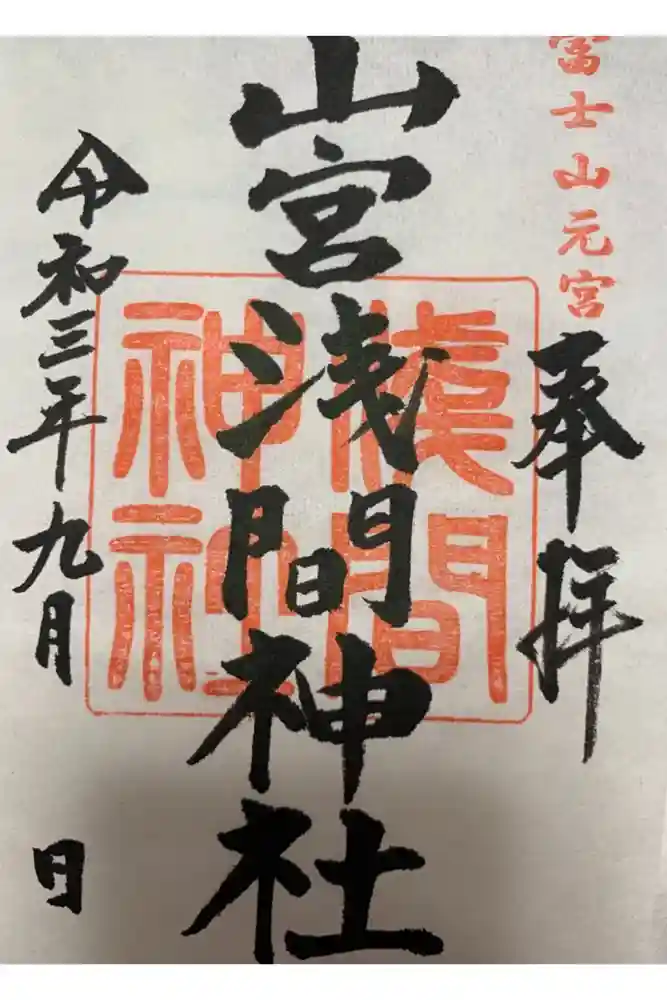 富士山元宮
奉拝
山宮浅間神社
浅間
神社
令和三年九月 日